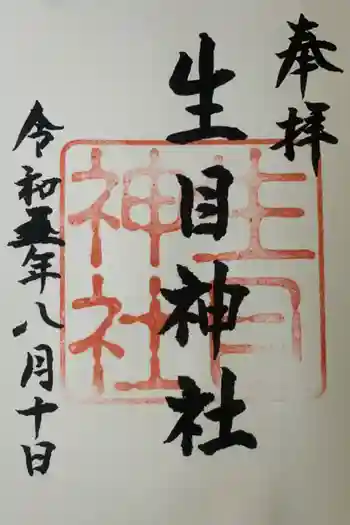 奉拝
生目神社
生目神社
令和五年八月十日